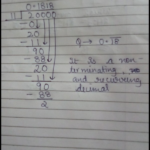 0.1818
11 | 2.0000
-0
20
-11
90
-88
20
-11
90
-88
2
It is a non-
terminating
and recurring
decimal